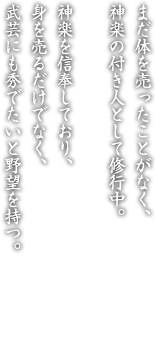 まだ体を売ったことがなく、
神楽の付き人として修行中。
神楽を信奉しており、
身を売るだけでなく、
武芸にも秀でたいと野望を持つ。